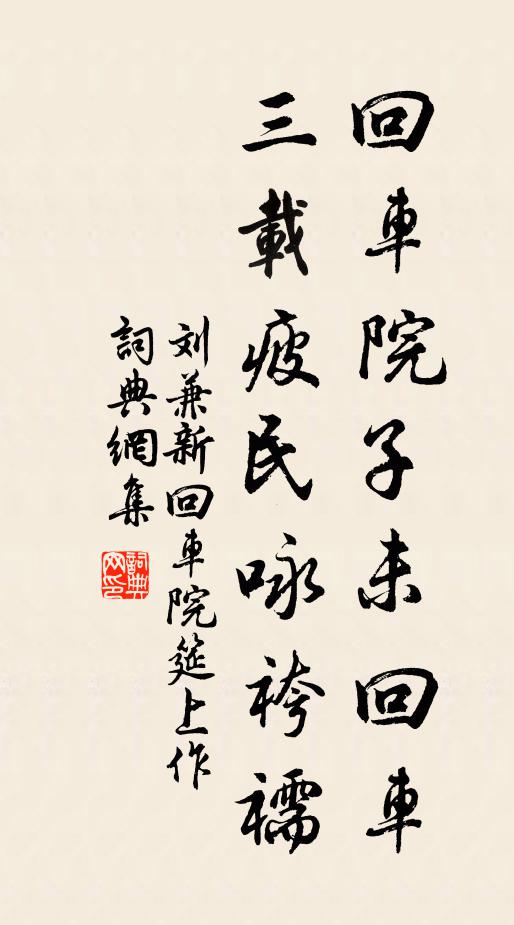 回車院子未回車
三載疲民咏袴襦
刘兼新回車院筵上作
詞典網集
詞典网印